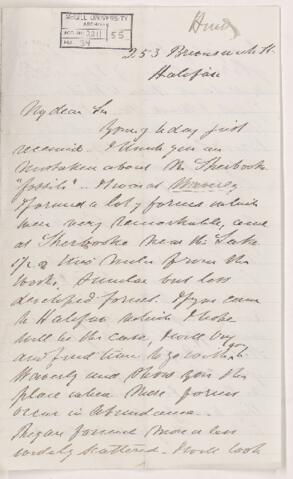 McGILL UNIVERSITY
ARCHIVES
ACC. NO. 2211
REF. 34
55
253 Brunswick St.
Halifax
My dear Sir
Yours today just
received. I think you are
mistaken about the Sherbrooke
"fossils". It was at Waverley
I found a lot of forms which
were very remarkable, and
at Sherbrooke near the Lake
1½ or two miles from the
works. Similar but less
developed forms. If you come
to Halifax which I hope
will be the case, I will try
and find time to go with you to
Waverly and show you the
place where these forms
occur in abundance.
more or less
widely scattered. I will look